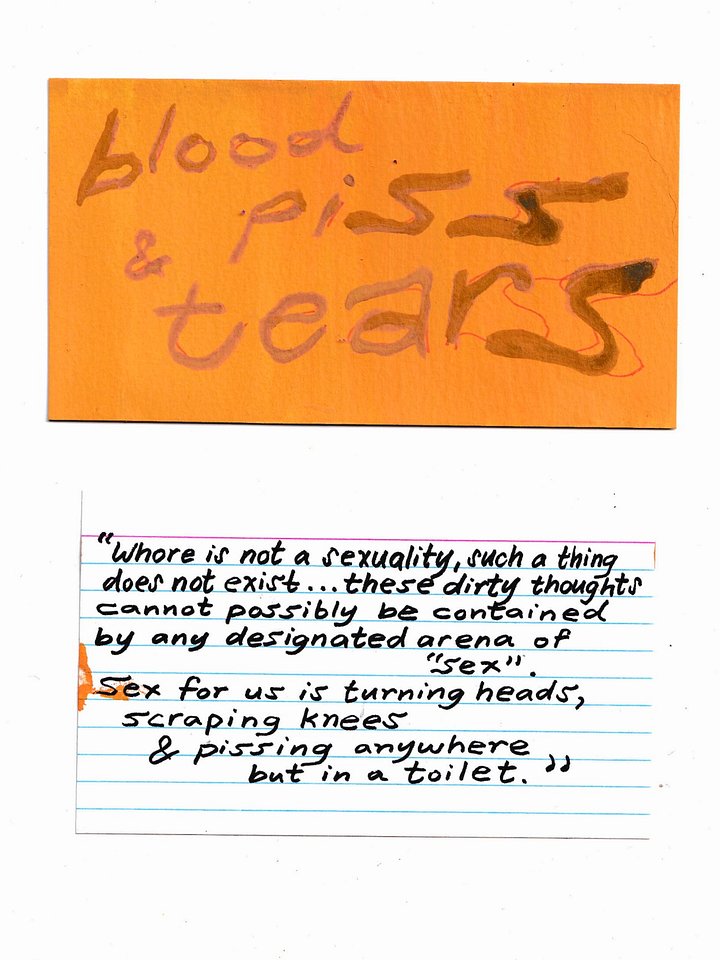 blood
piss
& tears
“Whore is not a sexuality, such a thing
does not exist... these dirty thoughts
cannot possibly be contained
by any designated arena of
“sex”.
Sex for us is turning heads,
scraping knees
& pissing anywhere
but in a toilet.”